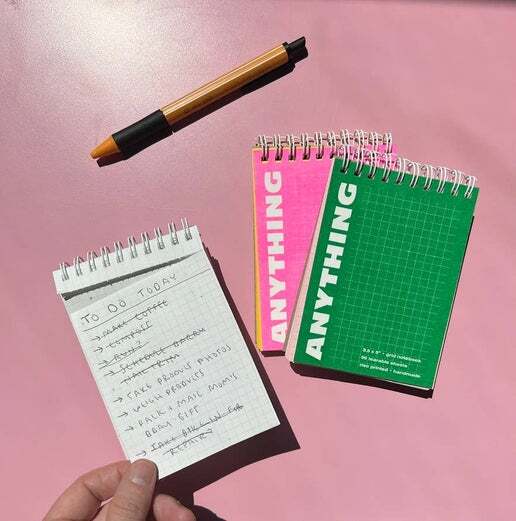 TO DO TODAY
→ MAKE COFFEE
→ COMPOST
→ RUN?
→ SCHEDULE
HAIR TRIM
→ TAKE PRODUCT PHOTOS
→ WEIGH PRODUCTS
→ PACK + MAIL MOM'S
BDAY GIFT
→ TAKE BIKE IN FOR
REPAIR
ANYTHING
ANYTHING
grid notebook
tearable sheets
riso printed • handmade